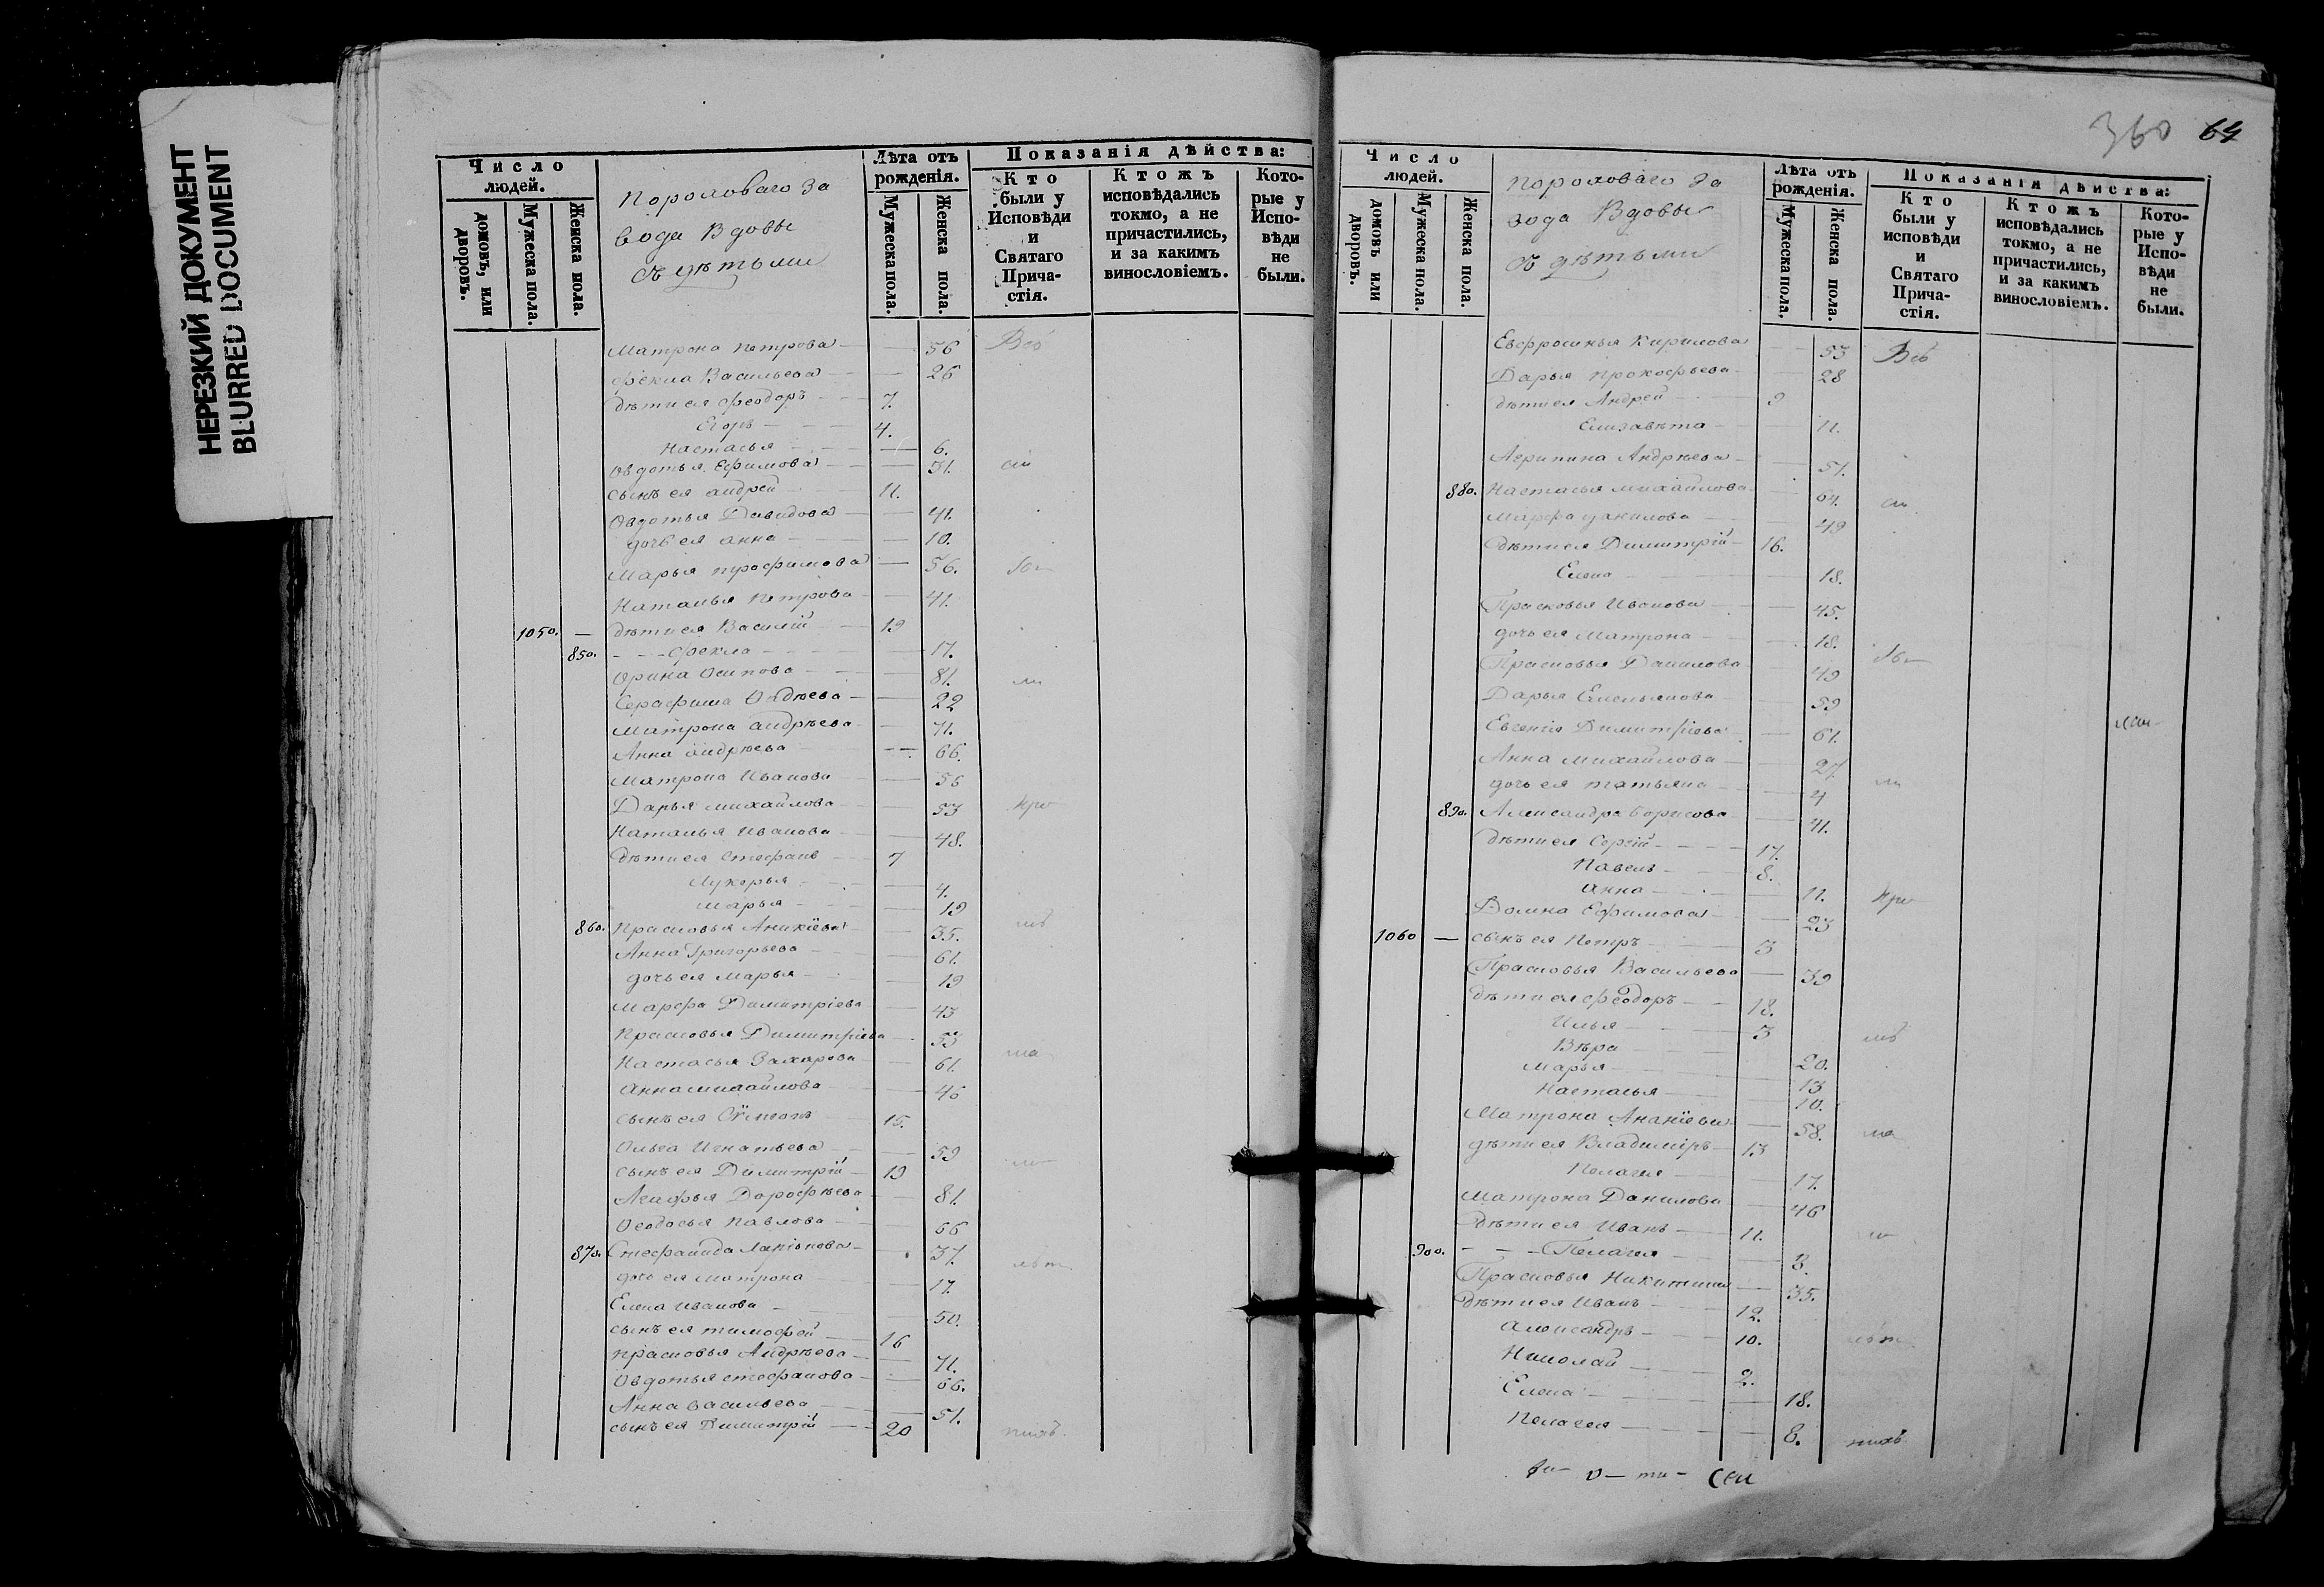 НЕРЕЗКИЙ ДОКУМЕНТ
BLURRED DOCUMENT
Число людей.
домовъ, или дворовъ.
Мужеска пола.
Женска пола.
Пороховаго за
вода Вдовы
съ дѣтьми
Лѣта отъ рожденія.
Мужеска пола.
Женска пола.
Показанія дѣйства:
Кто были у Исповѣди и Святаго Причастія.
Ктожъ исповѣдались токмо, а не причастились, и за какимъ винословіемъ.
Которые у Исповѣди не были.
Матрона Петрова — 56 Всѣ
Фекла Васильева — 26
дѣти ея Феодоръ — 7.
Егоръ — 4.
Настасья — 6.
Овдотья Ефимова — 51.
сынъ ея Андрей — 11.
Овдотья Давидова — 41.
дочь ея Анна — 10.
Марья Трофимова — 56.
Наталья Петрова — 41.
1050. — дѣти ея Василій — 19
850. — Фекла — 17.
Орина Осипова — 81.
Серафима — 22
Матрона Андрѣева — 71.
Анна Андрѣева — 66.
Матрона Иванова — 56
Дарья Михайлова — 53
Наталья Иванова — 48.
дѣти ея Стефанъ — 7
Лукерья — 4.
Марья — 19
860. Прасковья Аникіева — 35.
Анна Григорьева — 61.
дочь ея Марья — 19
Марфа Димитріева — 43
Прасковья Димитріева — 53
Настасья Захарова — 61.
Анна Михайлова — 46
сынъ ея — 15.
Ольга Игнатьева — 59
сынъ ея Димитрій — 19
Агафья Дорофѣева — 81.
Ѳеодосья Павлова — 66
870. Стефанида — 37.
дочь ея Матрона — 17.
Елена Иванова — 50.
сынъ ея Тимофей — 16
Прасковья Андрѣева — 71.
Овдотья Стефанова — 66.
Анна Васильева — 51.
сынъ ея Димитрій — 20
360 64
Число людей.
домовъ или дворовъ.
Мужеска пола.
Женска пола.
Пороховаго за
вода Вдовы
съ дѣтьми
Лѣта отъ рожденія.
Мужеска пола.
Женска пола.
Показанія дѣйства:
Кто были у исповѣди и Святаго Причастія.
Ктожъ исповѣдались токмо, а не причастились, и за какимъ винословіемъ.
Которые у Исповѣди не были.
Евфросинья Кирилова — 53 Всѣ
Дарья Прокофьева — 28
дѣти ея Андрей — 9
Елизавѣта — 11.
Агрипина Андрѣева — 51.
880. Настасья Михайлова — 64.
Марфа Данилова — 49
дѣти ея Димитрій — 16.
Елена — 18.
Прасковья Иванова — 45.
дочь ея Матрона — 18.
Прасковья Данилова — 49
Дарья Емельянова — 59
Евгенія Димитріева — 61.
Анна Михайлова — 27.
дочь ея Татьяна — 4
890. Александра Борисова — 41.
дѣти ея Сергій — 17.
Павелъ — 8.
Анна — 11.
Домна Ефимова — 23
1060 — сынъ ея Петръ — 3
Прасковья Васильева — 39
дѣти ея Феодоръ — 18.
Илья — 3
Вѣра — 20.
Марья — 13
Настасья — 10.
Матрона Ананіева — 58.
дѣти ея Владиміръ — 13
Пелагея — 17.
Матрона Данилова — 46
дѣти ея Иванъ — 11.
900. — Пелагея — 8.
Прасковья Никитина — 35.
дѣти ея Иванъ — 12.
Александръ — 10.
Николай — 2.
Елена — 18.
Пелагея — 8.